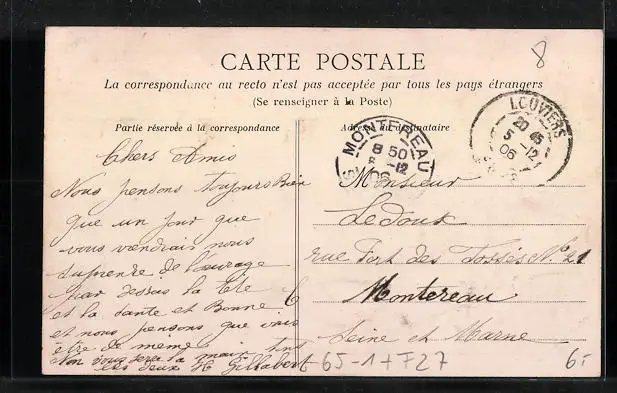 8
CARTE POSTALE
La correspondance au recto n'est pas acceptée par tous les pays étrangers
(Se renseigner à la Poste)
Partie réservée à la correspondance
Adresse du destinataire
LOUVIERS
20 45
5 -12
06
MONTEREAU
8 50
-12
06
Chers Amis
Nous pensons toujours Bien
que un jour que
vous vendrais nous
suprenre de l'ourage
par dessus la tête
et la sante et Bonne
et nous pensons que vous
être de même
Non vous sera la main
les deux H Gillabert
Monsieur
Ledoux
rue Fort des Fossés No 21
Montereau
Seine et Marne
65-1+F27
6.-